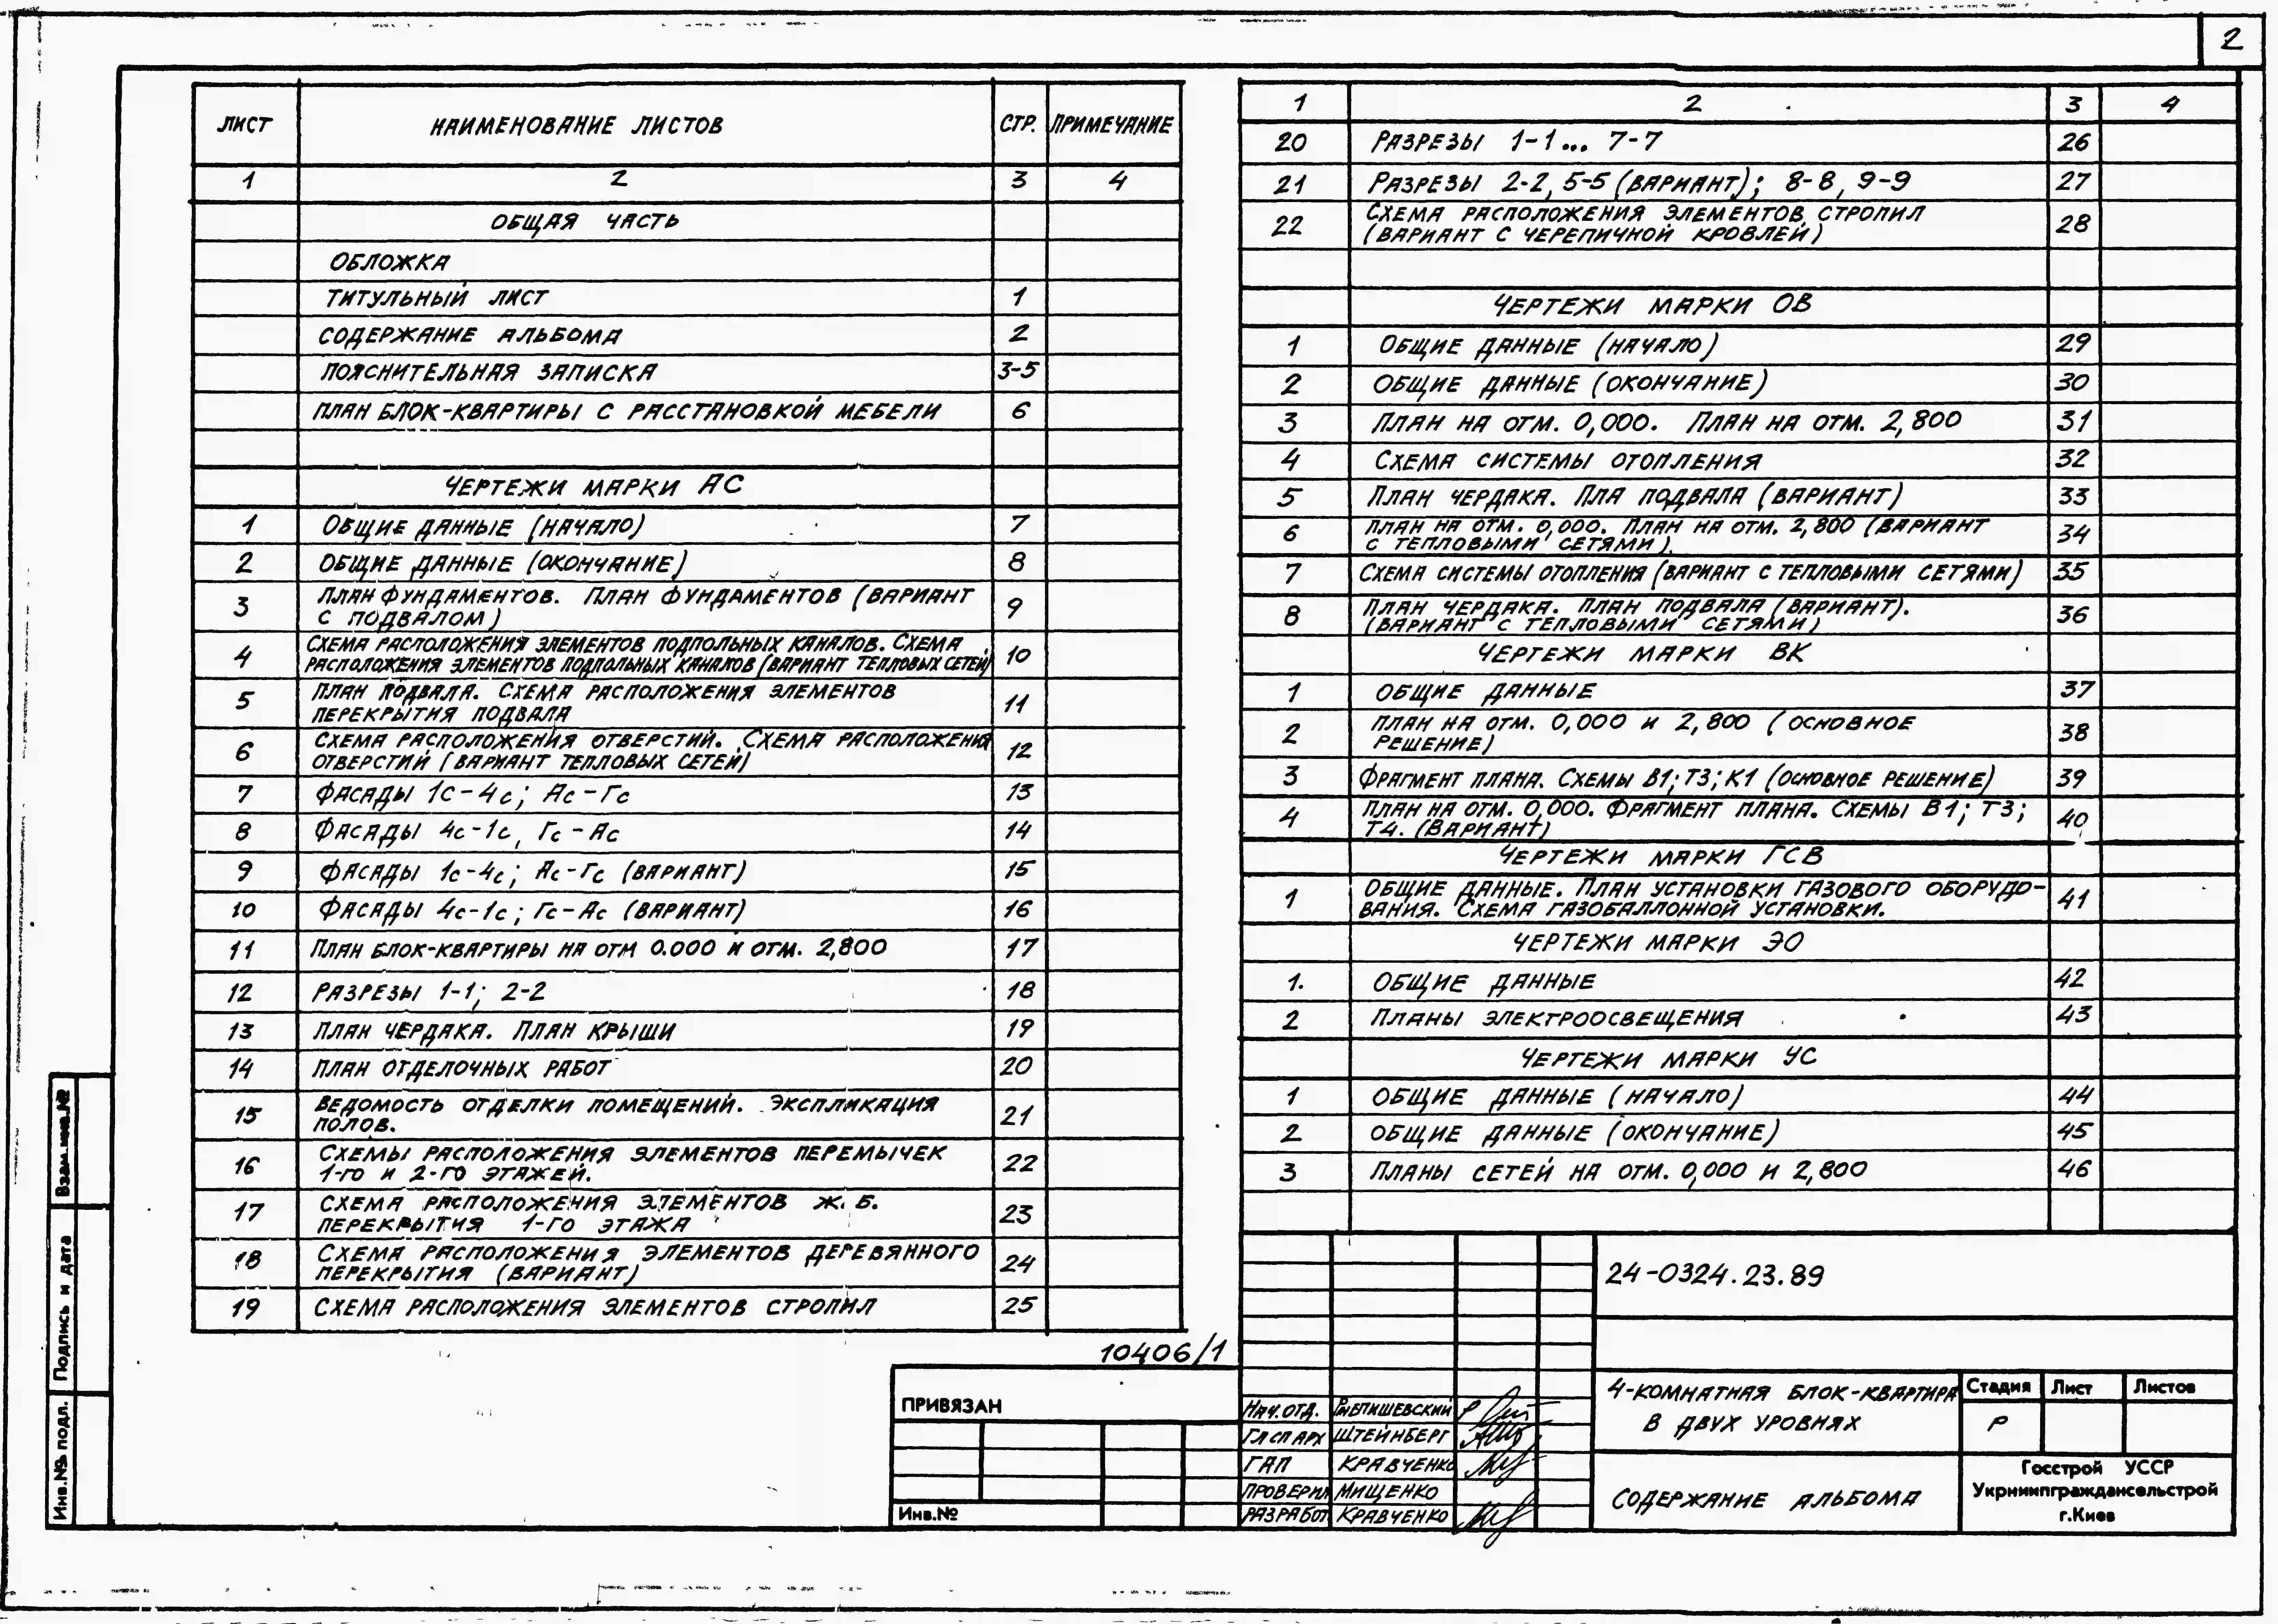 2
ЛИСТ НАИМЕНОВАНИЕ ЛИСТОВ СТР. ПРИМЕЧАНИЕ
1 2 3 4
ОБЩАЯ ЧАСТЬ
ОБЛОЖКА
ТИТУЛЬНЫЙ ЛИСТ 1
СОДЕРЖАНИЕ АЛЬБОМА 2
ПОЯСНИТЕЛЬНАЯ ЗАПИСКА 3-5
ПЛАН БЛОК-КВАРТИРЫ С РАССТАНОВКОЙ МЕБЕЛИ 6
ЧЕРТЕЖИ МАРКИ АС
1 ОБЩИЕ ДАННЫЕ (НАЧАЛО) 7
2 ОБЩИЕ ДАННЫЕ (ОКОНЧАНИЕ) 8
3 ПЛАН ФУНДАМЕНТОВ. ПЛАН ФУНДАМЕНТОВ (ВАРИАНТ
С ПОДВАЛОМ) 9
4 СХЕМА РАСПОЛОЖЕНИЯ ЭЛЕМЕНТОВ ПОДПОЛЬНЫХ КАНАЛОВ. СХЕМА
РАСПОЛОЖЕНИЯ ЭЛЕМЕНТОВ ПОДПОЛЬНЫХ КАНАЛОВ (ВАРИАНТ ТЕПЛОВЫХ СЕТЕЙ) 10
5 ПЛАН ПОДВАЛА. СХЕМА РАСПОЛОЖЕНИЯ ЭЛЕМЕНТОВ
ПЕРЕКРЫТИЯ ПОДВАЛА 11
6 СХЕМА РАСПОЛОЖЕНИЯ ОТВЕРСТИЙ. СХЕМА РАСПОЛОЖЕНИЯ
ОТВЕРСТИЙ (ВАРИАНТ ТЕПЛОВЫХ СЕТЕЙ) 12
7 ФАСАДЫ 1с-4с; Ас-Гс 13
8 ФАСАДЫ 4с-1с, Гс-Ас 14
9 ФАСАДЫ 1с-4с; Ас-Гс (ВАРИАНТ) 15
10 ФАСАДЫ 4с-1с; Гс-Ас (ВАРИАНТ) 16
11 ПЛАН БЛОК-КВАРТИРЫ НА ОТМ 0.000 И ОТМ. 2,800 17
12 РАЗРЕЗЫ 1-1; 2-2 18
13 ПЛАН ЧЕРДАКА. ПЛАН КРЫШИ 19
14 ПЛАН ОТДЕЛОЧНЫХ РАБОТ 20
15 ВЕДОМОСТЬ ОТДЕЛКИ ПОМЕЩЕНИЙ. ЭКСПЛИКАЦИЯ
ПОЛОВ. 21
16 СХЕМЫ РАСПОЛОЖЕНИЯ ЭЛЕМЕНТОВ ПЕРЕМЫЧЕК
1-ГО И 2-ГО ЭТАЖЕЙ. 22
17 СХЕМА РАСПОЛОЖЕНИЯ ЭЛЕМЕНТОВ Ж.Б.
ПЕРЕКРЫТИЯ 1-ГО ЭТАЖА 23
18 СХЕМА РАСПОЛОЖЕНИЯ ЭЛЕМЕНТОВ ДЕРЕВЯННОГО
ПЕРЕКРЫТИЯ (ВАРИАНТ) 24
19 СХЕМА РАСПОЛОЖЕНИЯ ЭЛЕМЕНТОВ СТРОПИЛ 25
1 2 3 4
20 РАЗРЕЗЫ 1-1... 7-7 26
21 РАЗРЕЗЫ 2-2, 5-5 (ВАРИАНТ); 8-8, 9-9 27
22 СХЕМА РАСПОЛОЖЕНИЯ ЭЛЕМЕНТОВ СТРОПИЛ
(ВАРИАНТ С ЧЕРЕПИЧНОЙ КРОВЛЕЙ) 28
ЧЕРТЕЖИ МАРКИ ОВ
1 ОБЩИЕ ДАННЫЕ (НАЧАЛО) 29
2 ОБЩИЕ ДАННЫЕ (ОКОНЧАНИЕ) 30
3 ПЛАН НА ОТМ. 0,000. ПЛАН НА ОТМ. 2,800 31
4 СХЕМА СИСТЕМЫ ОТОПЛЕНИЯ 32
5 ПЛАН ЧЕРДАКА. ПЛА ПОДВАЛА (ВАРИАНТ) 33
6 ПЛАН НА ОТМ. 0,000. ПЛАН НА ОТМ. 2,800 (ВАРИАНТ
С ТЕПЛОВЫМИ СЕТЯМИ). 34
7 СХЕМА СИСТЕМЫ ОТОПЛЕНИЯ (ВАРИАНТ С ТЕПЛОВЫМИ СЕТЯМИ) 35
8 ПЛАН ЧЕРДАКА. ПЛАН ПОДВАЛА (ВАРИАНТ).
(ВАРИАНТ С ТЕПЛОВЫМИ СЕТЯМИ) 36
ЧЕРТЕЖИ МАРКИ ВК
1 ОБЩИЕ ДАННЫЕ 37
2 ПЛАН НА ОТМ. 0,000 И 2,800 (ОСНОВНОЕ
РЕШЕНИЕ) 38
3 ФРАГМЕНТ ПЛАНА. СХЕМЫ В1; Т3; К1 (ОСНОВНОЕ РЕШЕНИЕ) 39
4 ПЛАН НА ОТМ. 0,000. ФРАГМЕНТ ПЛАНА. СХЕМЫ В1; Т3;
Т4. (ВАРИАНТ) 40
ЧЕРТЕЖИ МАРКИ ГСВ
1 ОБЩИЕ ДАННЫЕ. ПЛАН УСТАНОВКИ ГАЗОВОГО ОБОРУДО-
ВАНИЯ. СХЕМА ГАЗОБАЛЛОННОЙ УСТАНОВКИ. 41
ЧЕРТЕЖИ МАРКИ ЭО
1. ОБЩИЕ ДАННЫЕ 42
2 ПЛАНЫ ЭЛЕКТРООСВЕЩЕНИЯ 43
ЧЕРТЕЖИ МАРКИ УС
1 ОБЩИЕ ДАННЫЕ (НАЧАЛО) 44
2 ОБЩИЕ ДАННЫЕ (ОКОНЧАНИЕ) 45
3 ПЛАНЫ СЕТЕЙ НА ОТМ. 0,000 И 2,800 46
10406/1
24-0324.23.89
4-КОМНАТНАЯ БЛОК-КВАРТИРА
В ДВУХ УРОВНЯХ
Стадия Лист Листов
Р
СОДЕРЖАНИЕ АЛЬБОМА
Госстрой УССР
Укрниипграждансельстрой
г.Киев
НАЧ.ОТД.
ГЛ СП АРХ ШТЕЙНБЕРГ
ГАП КРАВЧЕНКО
ПРОВЕРИЛ МИЩЕНКО
РАЗРАБОТ КРАВЧЕНКО
ПРИВЯЗАН
Инв.№
Взам.инв.№
Подпись и дата
Инв.№ подл.